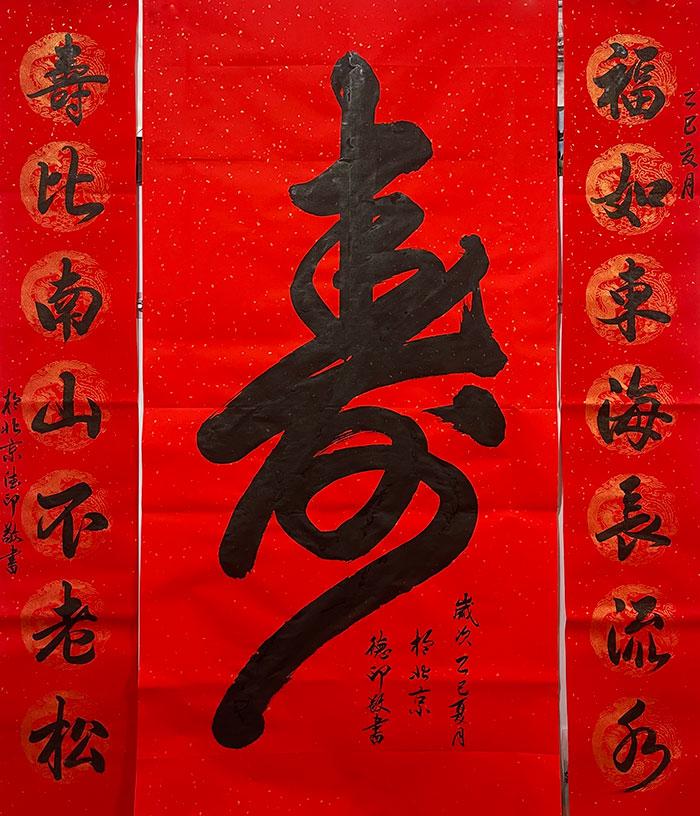 乙巳夏月
福如東海長流水
寿
歲次乙巳夏月
於北京
德印敬書
壽比南山不老松
於北京德印敬書